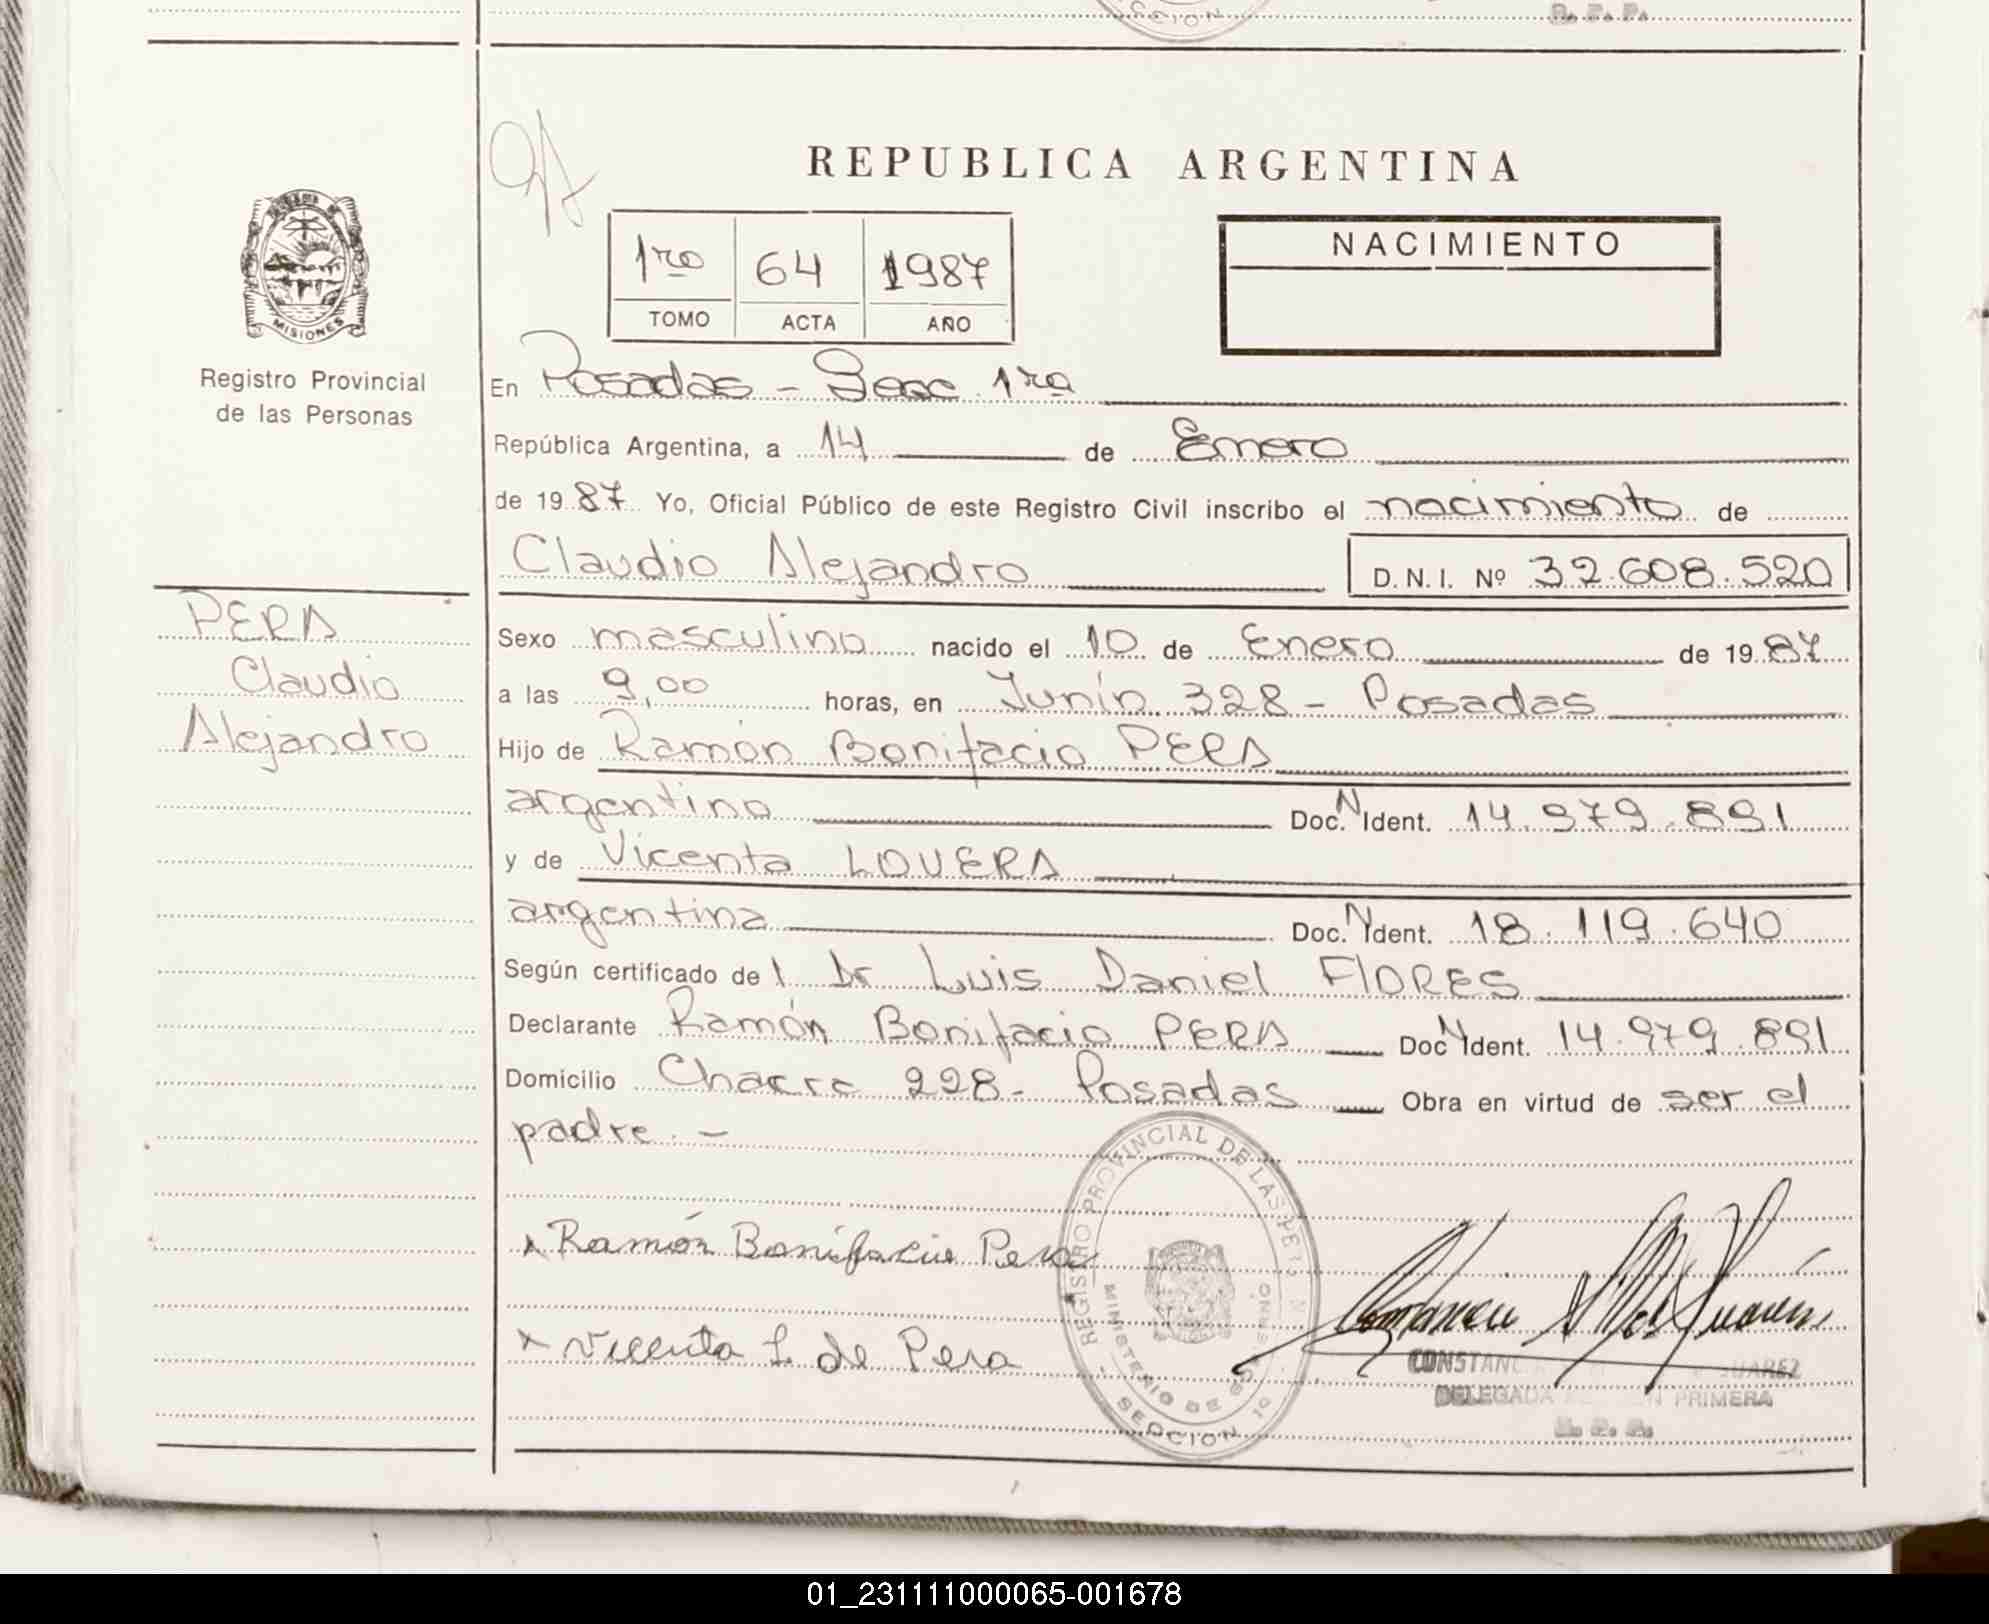 CCION
R. P. P.
MISIONES
Registro Provincial
de las Personas
PERA
Claudio
Alejandro
REPUBLICA ARGENTINA
1ro 64 1987
TOMO ACTA AÑO
NACIMIENTO
En Posadas - Secc. 1ra
República Argentina, a 14 de Enero
de 1987 Yo, Oficial Público de este Registro Civil inscribo el nacimiento de
Claudio Alejandro D.N.I. Nº 32.608.520
Sexo masculino nacido el 10 de Enero de 1987
a las 9,00 horas, en Junín 328 - Posadas
Hijo de Ramón Bonifacio PERA
argentino Doc. N Ident. 14.979.891
y de Vicenta LOVERA
argentina Doc. N Ident. 18.119.640
Según certificado del Dr Luis Daniel FLORES
Declarante Ramón Bonifacio PERA Doc N Ident. 14.979.891
Domicilio Chacra 228 - Posadas Obra en virtud de ser el
padre. -
x Ramón Bonifacio Pera
x Vicenta L. de Pera
REGISTRO PROVINCIAL DE LAS PER
MINISTERIO DE GOBIERNO
SECCION 1º
CONSTANC SUAREZ
DELEGADA SECCION PRIMERA
R. P. P.
01_231111000065-001678